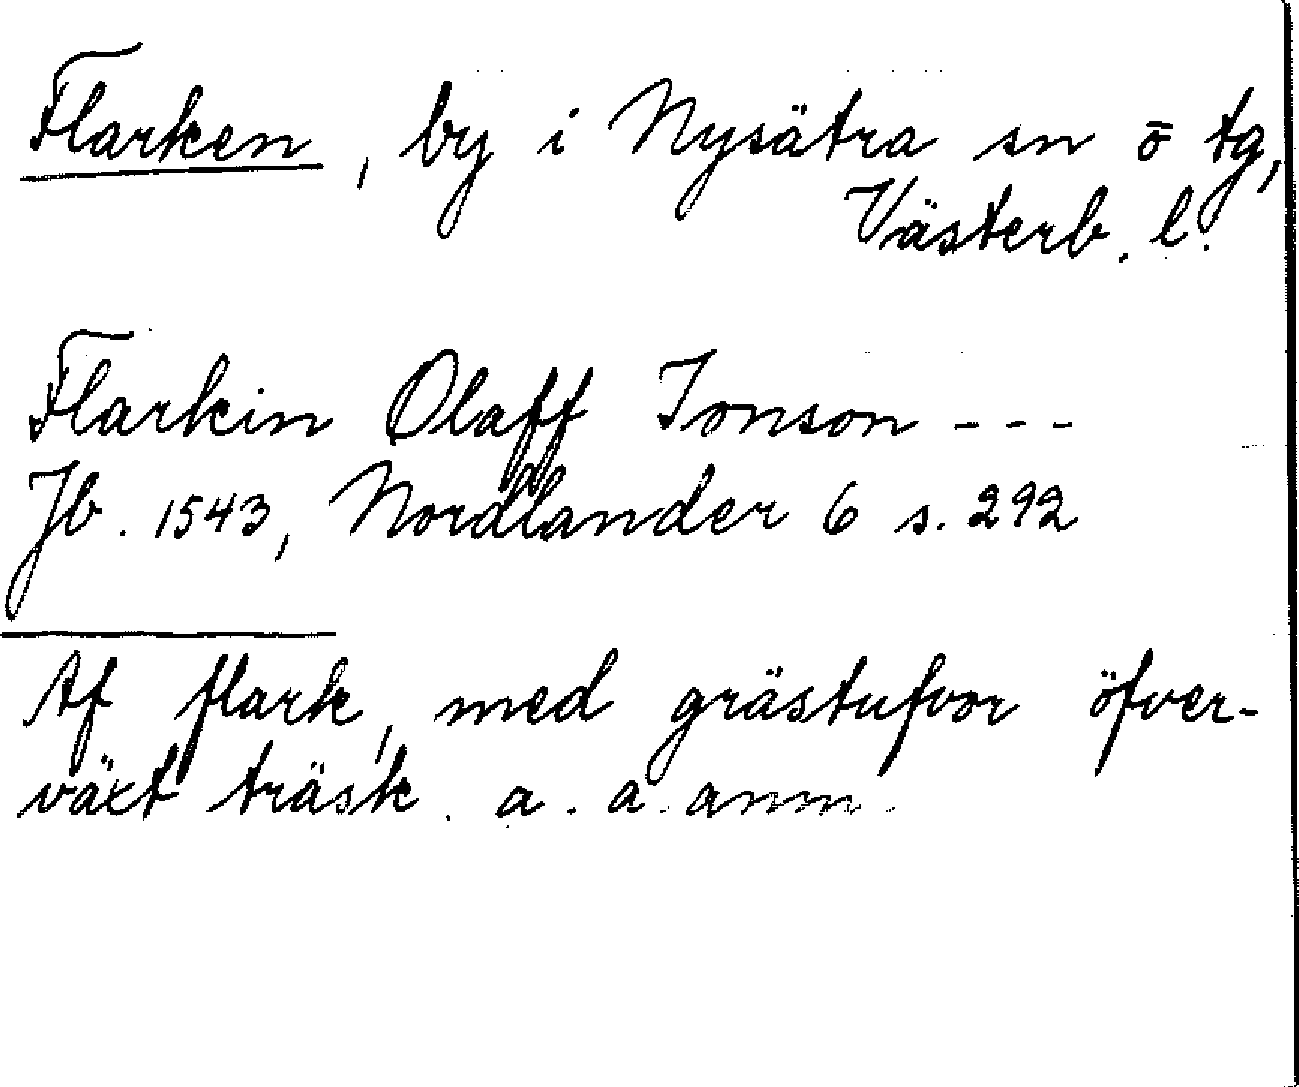 Flarken, by i Nysätra sn ō tg,
Västerb. l.
Flarkin Olaff Jonson - - -
Jb. 1543, Nordlander 6 s. 292
Af flark, med grästufvor öfver-
växt träsk. a. a. anm.